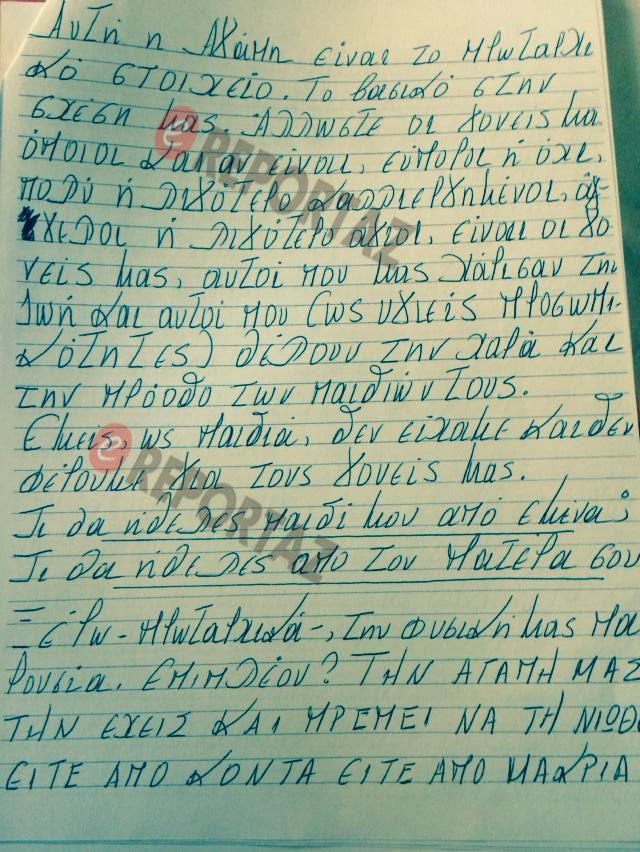 Αυτή η Αγάπη είναι το πρωταρχι
κό στοιχείο. Το βασικό στην
σχέση μας. Άλλωστε οι γονείς μα
όποιοι και αν είναι, εύποροι ή όχι,
πολύ ή λιγότερο καλλιεργημένοι, άγ
γελοι ή λιγότερο άγιοι, είναι οι γο
νείς μας, αυτοί που μας χάρισαν την
ζωή και αυτοί που (ως υγιείς προσωπι-
κότητες) θέλουν την χαρά και
την πρόοδο των παιδιών τους.
Εμείς, ως παιδιά, δεν είχαμε και δεν
φέρουμε για τους γονείς μας.
Τι θα ήθελες παιδί μου από εμένα;
Τι θα ήθελες απο τον πατέρα σου
Ξέρω - πρωταρχικά -, την φυσική μας πα
ρουσία. Επιπλέον? ΤΗΝ ΑΓΑΠΗ ΜΑΣ
ΤΗΝ ΕΧΕΙΣ ΚΑΙ ΠΡΕΠΕΙ ΝΑ ΤΗ ΝΙΩΘ
ΕΙΤΕ ΑΠΟ ΚΟΝΤΑ ΕΙΤΕ ΑΠΟ ΜΑΚΡΙΑ
e REPORTAZ
e REPORTAZ